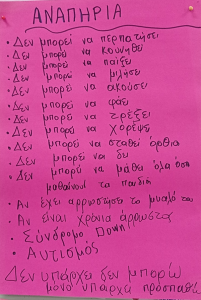 ΑΝΑΠΗΡΙΑ
• Δεν μπορεί να περπατήσει
• Δεν μπορεί να κουνηθεί
• Δεν μπορεί να παίξει
• Δεν μπορεί να μιλήσει
• Δεν μπορεί να ακούσει
• Δεν μπορεί να φάει
• Δεν μπορεί να τρέξει
• Δεν μπορεί να χορέψει
• Δεν μπορεί να σταθεί όρθια
• Δεν μπορεί να δει
• Δεν μπορεί να μάθει όλα όσα
μαθαίνουν τα παιδιά
• Αν έχει αρρωστήσει το μυαλό του
• Αν είναι χρόνια άρρωστος
• Σύνδρομο Down
• Αυτισμός
Δεν υπάρχει δεν μπορώ
μόνο υπάρχει προσπαθώ